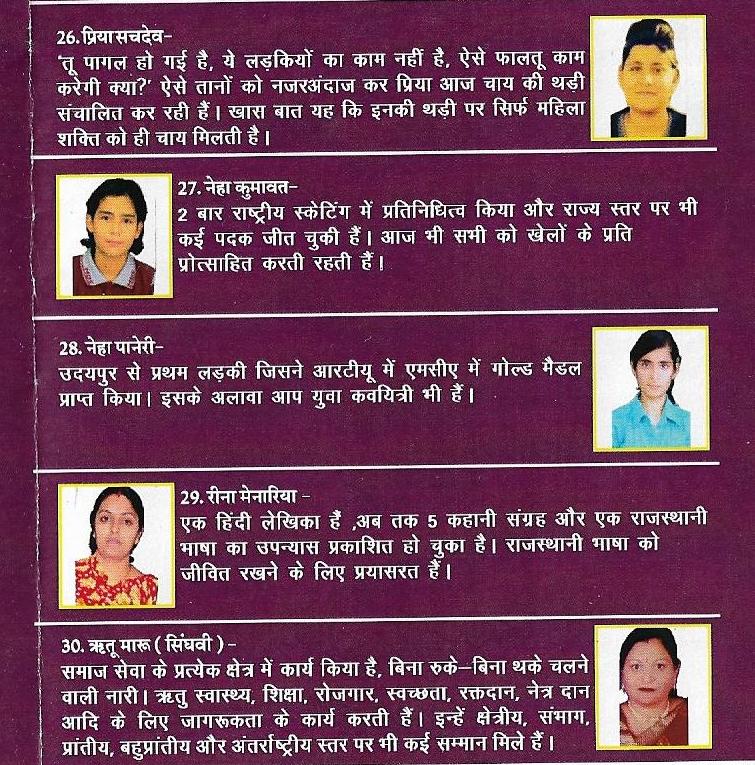 26. प्रिया सचदेव–
'तू पागल हो गई है, ये लड़कियों का काम नहीं है, ऐसे फालतू काम
करेगी क्या?' ऐसे तानों को नजरअंदाज कर प्रिया आज चाय की थड़ी
संचालित कर रही हैं। खास बात यह कि इनकी थड़ी पर सिर्फ महिला
शक्ति को ही चाय मिलती है।
27. नेहा कुमावत–
2 बार राष्ट्रीय स्केटिंग में प्रतिनिधित्व किया और राज्य स्तर पर भी
कई पदक जीत चुकी हैं। आज भी सभी को खेलों के प्रति
प्रोत्साहित करती रहती हैं।
28. नेहा पानेरी–
उदयपुर से प्रथम लड़की जिसने आरटीयू में एमसीए में गोल्ड मैडल
प्राप्त किया। इसके अलावा आप युवा कवयित्री भी हैं।
29. रीना मेनारिया –
एक हिंदी लेखिका हैं ,अब तक 5 कहानी संग्रह और एक राजस्थानी
भाषा का उपन्यास प्रकाशित हो चुका है। राजस्थानी भाषा को
जीवित रखने के लिए प्रयासरत हैं।
30. ऋतू मारू ( सिंघवी ) –
समाज सेवा के प्रत्येक क्षेत्र में कार्य किया है, बिना रुके–बिना थके चलने
वाली नारी। ऋतु स्वास्थ्य, शिक्षा, रोजगार, स्वच्छता, रक्तदान, नेत्र दान
आदि के लिए जागरूकता के कार्य करती हैं। इन्हें क्षेत्रीय, संभाग,
प्रांतीय, बहुप्रांतीय और अंतर्राष्ट्रीय स्तर पर भी कई सम्मान मिले हैं।